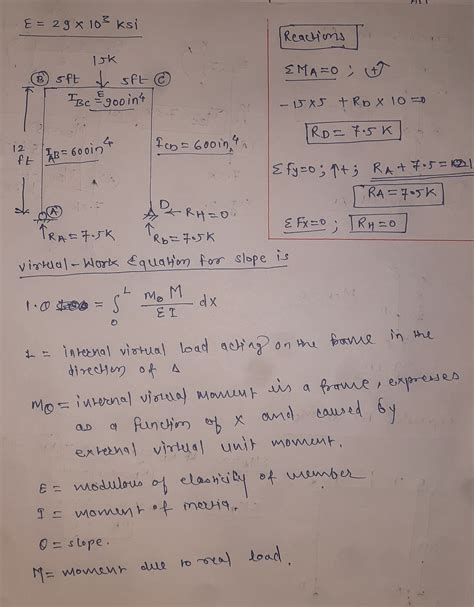 E = 29 × 10³ ksi
15K
B 5ft E 5ft C
I_BC = 900in⁴
12 ft
I_AB = 600in⁴
I_CD = 600in⁴
A
D ← R_H = 0
↑R_A = 7.5K
↑R_D = 7.5K
Reactions
ΣM_A = 0 ;
- 15×5 + R_D × 10 = 0
R_D = 7.5K
ΣFy = 0 ; ↑+ ; R_A + 7.5 =
R_A = 7.5K
ΣFx = 0 ; R_H = 0
virtual - Work Equation for slope is
1.θ = ∫₀ᴸ m_θ M / EI dx
1 = internal virtual load acting on the frame in the
direction of Δ
M_θ = internal virtual moment in a frame, expresses
as a function of x and caused by
external virtual unit moment.
E = modulous of elasticity of member
I = moment of inertia.
θ = slope.
M = moment due to real load.